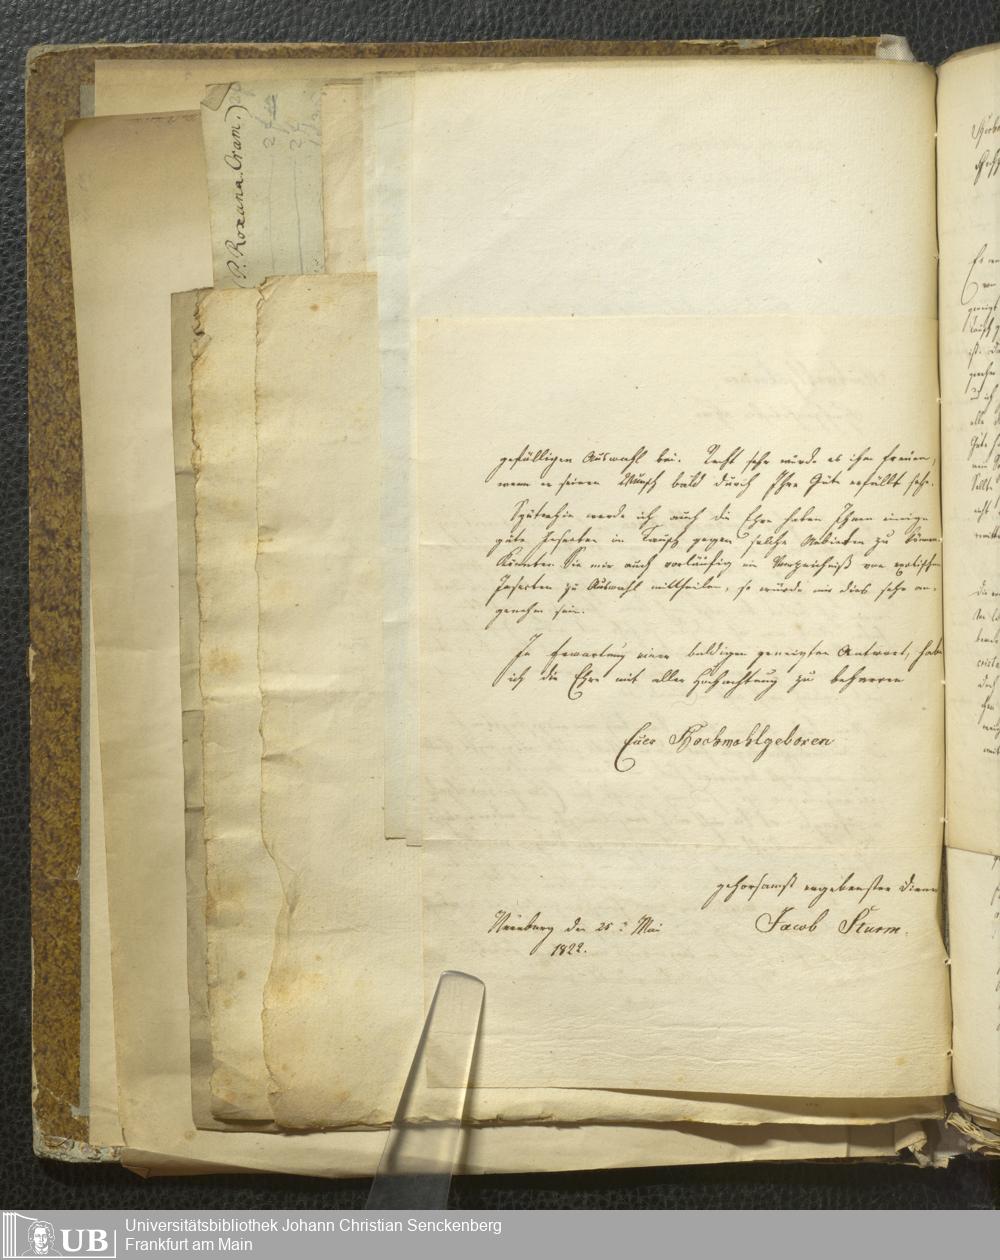 P. Roxana. Cram.)
gefälligen Auswahl bei. Recht sehr würde es ihn freuen,
wenn er seinen Wunsch bald durch Ihre Güte erfüllt sehe.
Späterhin werde ich auch die Ehre haben Ihnen einige
gute Insecten in Tausch gegen solche Anbieten zu können.
Könnten Sie mir auch vorläufig ein Verzeichniß von exotischen
Insecten zu Auswahl mittheilen, so würde mir dies sehr an-
genehm sein.
In Erwartung einer baldigen geneigten Antwort, habe
ich die Ehre mit aller Hochachtung zu beharren
Euer Hochwohlgeboren
gehorsamst ergebenster Diener
Jacob Sturm.
Nürnberg den 25t Mai
1822.
UB
Universitätsbibliothek Johann Christian Senckenberg
Frankfurt am Main